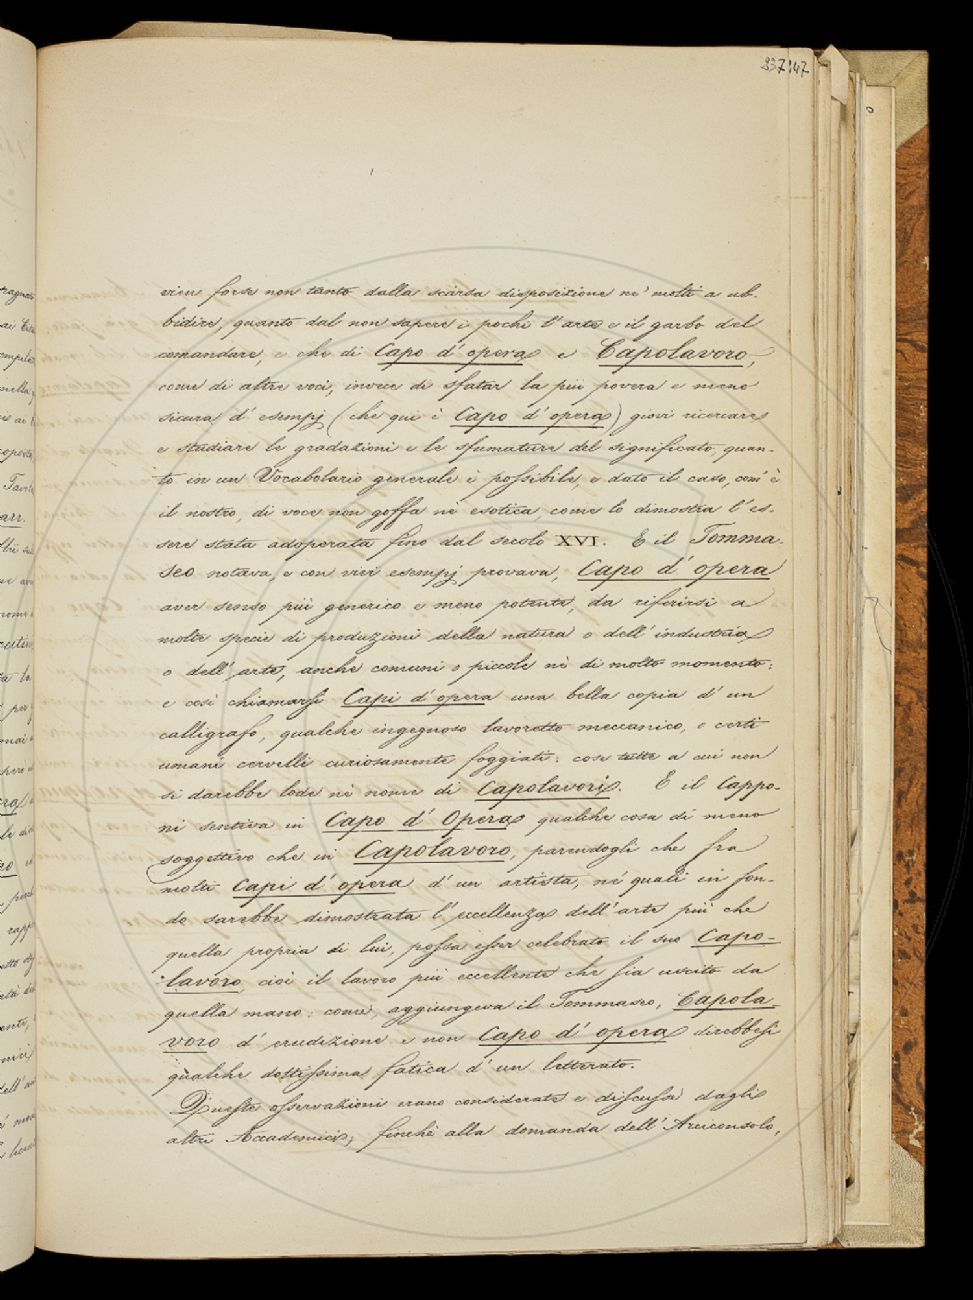 237 147
vien forse non tanto dalla scarsa disposizione ne' molti a ub-
bidire, quanto dal non sapere i pochi l'arte e il garbo del
comandare, e che di Capo d'opera e Capolavoro,
come di altre voci, invece di sfatar la più povera e meno
sicura d'esempj (che qui è Capo d'opera) giovi ricercare
e studiare le gradazioni e le sfumature del significato quan-
to in un Vocabolario generale è possibile, e dato il caso, com'è
il nostro, di voce non goffa nè esotica, come lo dimostra l'es-
sere stata adoperata fino dal secolo XVI. E il Tomma
seo notava, e con vivi esempj provava, Capo d'opera
aver senso più generico e meno potente, da riferirsi a
molte specie di produzioni della natura o dell'industria
o dell'arte, anche comuni o piccole nè di molto momento:
e così chiamarsi Capi d'opera una bella copia d'un
calligrafo, qualche ingegnoso lavoretto meccanico, e certi
umani cervelli curiosamente foggiati: cose tutte a cui non
si darebbe lode nè nome di Capolavori. E il Cappo-
ni sentiva in Capo d'Opera qualche cosa di meno
soggettivo che in Capolavoro, parendogli che fra
molti Capi d'opera d'un artista, ne' quali in fon-
do sarebbe dimostrata l'eccellenza dell'arte più che
quella propria di lui, possa esser celebrato il suo Capo-
lavoro, cioè il lavoro più eccellente che sia uscito da
quella mano: come, aggiungeva il Tommaseo, Capola
voro d'erudizione e non Capo d'opera direbbesi
qualche dottissima fatica d'un letterato.
Queste osservazioni erano considerate e discusse dagli
altri Accademici, finchè alla domanda dell'Arciconsolo,